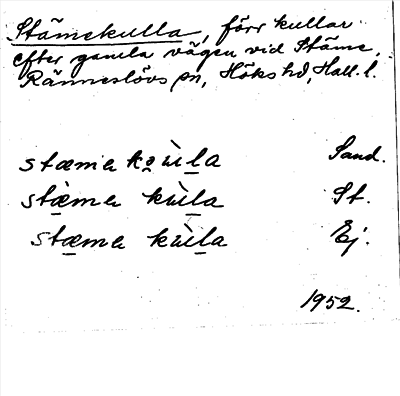 Stämekulla, förr kullar
efter gamla vägen vid Stäme,
Ränneslövs sn, Höks hd, Hall. l.
stæmɐ kɷùla Sand.
stæ̀mɐ kùla St.
stæmɐ kùla Ej.
1952.